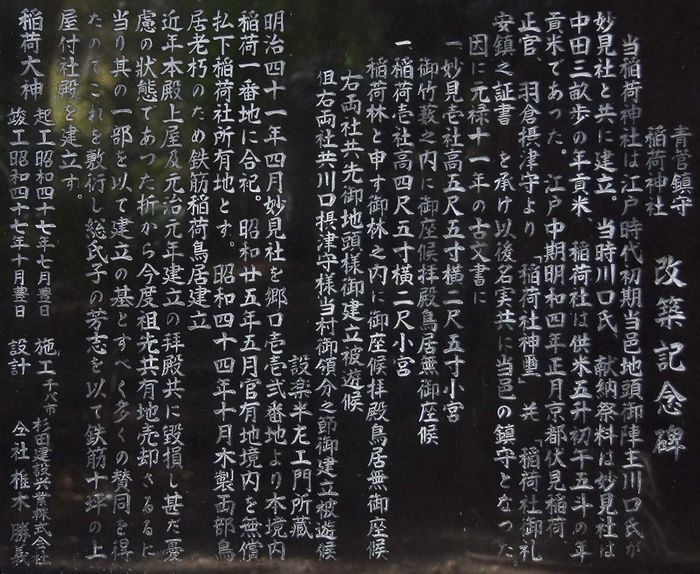 青菅鎮守
稲荷神社
改築記念碑
当稲荷神社は江戸時代初期当邑地頭御陣主川口氏が
妙見社と共に建立。当時川口氏 献納祭料は妙見社は
中田三畝歩の年貢米、稲荷社は供米五升初午五斗の年
貢米であった。江戸中期明和四年正月京都伏見稲荷
正官、羽倉摂津守より 「稲荷社神璽」 并 「稲荷社御札
安鎮之証書 を承け以後名実共に当邑の鎮守となつた。
因に元禄十一年の古文書に
一妙見壱社高五尺五寸横二尺五寸小宮
御竹薮之内に御座候拝殿鳥居無御座候
一稲荷壱社高四尺五寸横二尺小宮
稲荷林と申す御林之内に御座候拝殿鳥居無御座候
右両社共先御地頭様御建立被遊候
但右両社共川口摂津守様当村御領分之節御建立被遊候
設楽半左エ門所蔵
明治四十一年四月妙見社を郷口壱壱弐番地より本境内
稲荷一番地に合祀。昭和廿五年五月官有地境内を無償
払下稲荷社所有地とす。昭和四十四年十月木製両部鳥
居老朽のため鉄筋稲荷鳥居建立
近年本殿上屋及元治元年建立の拝殿共に毀損し甚だ憂
慮の狀態であつた折から今度祖先共有地売却さるるに
当り其の一部を以て建立の基とすべく多くの賛同を得
たのでこれを敷衍し総氏子の芳志を以て鉄筋十坪の上
屋付社殿を建立す。
稲荷大神 起工昭和四十七年七月豊日 施工千バ市 杉田建設興業株式会社
竣工昭和四十七年十月豊日 設計 仝社 椎木勝義